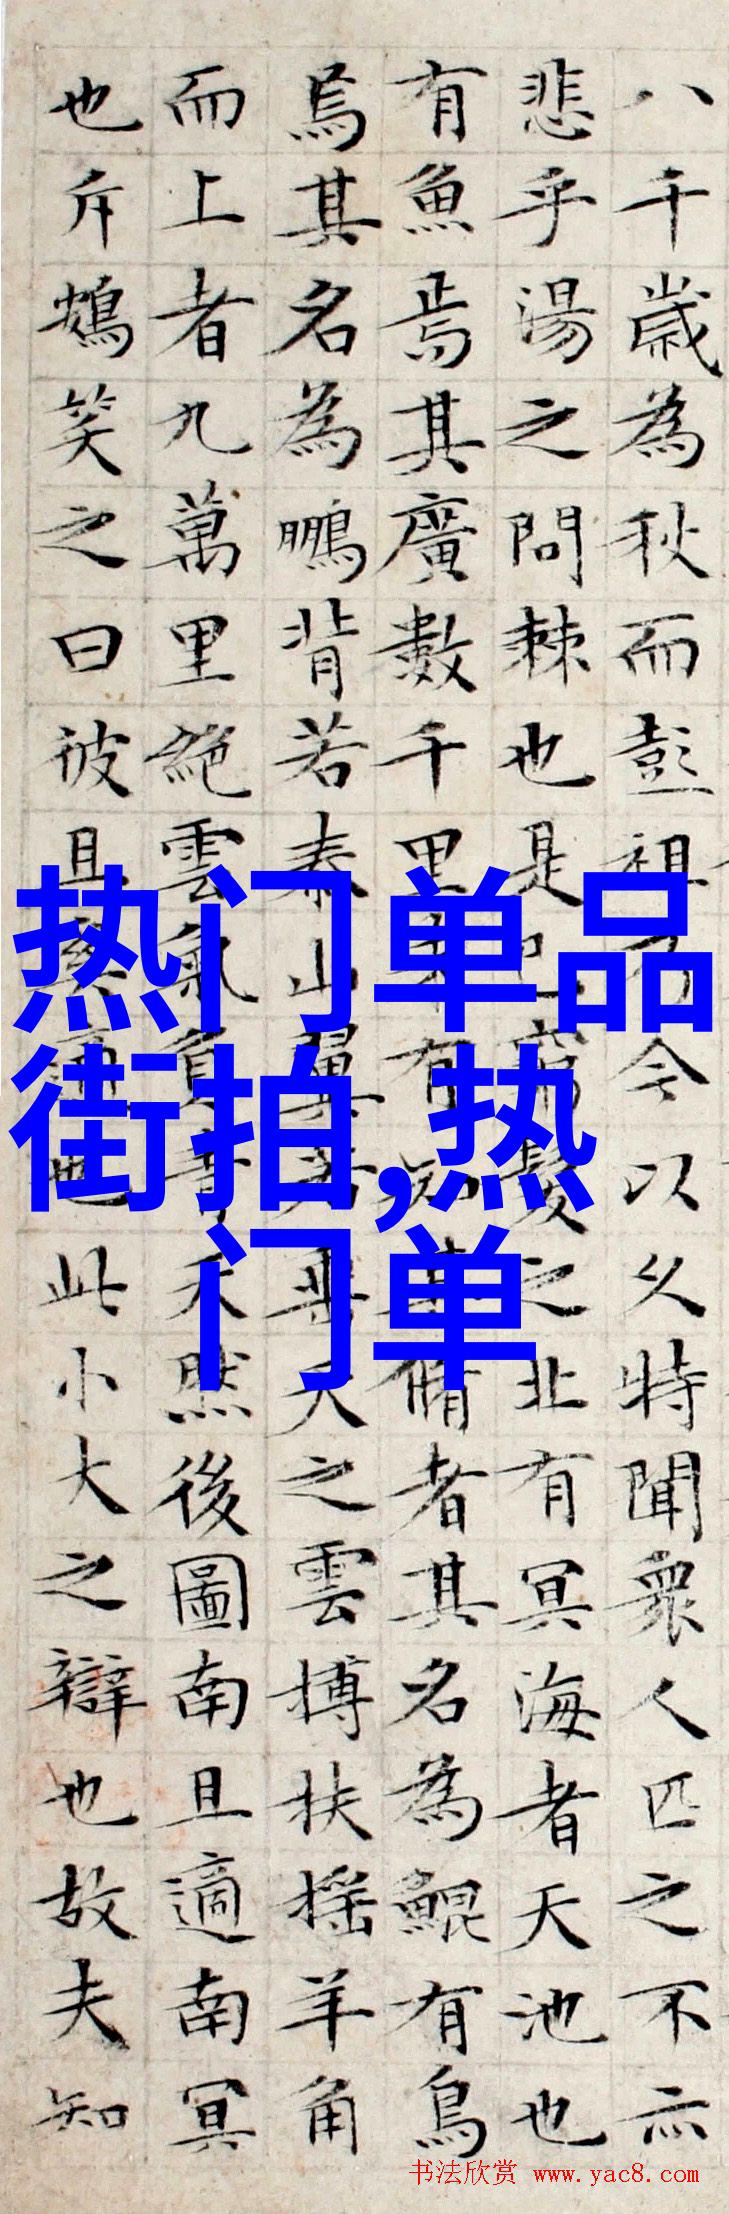 八千歲為秋而彭祖乃今以久特聞眾人匹之不亦
悲乎湯之問棘也是已窮髮之北有冥海者天池也
有魚焉其廣數千里未有知其脩者其名為鯤有鳥
焉其名為鵬背若泰山翼若垂天之雲搏扶搖羊角
而上者九萬里絕雲氣負青天然後圖南且適南冥
也斥鴳笑之曰彼且奚適也此小大之辯也故夫知
热门单品
街拍,热
门单
书法欣赏 www.yac8.com